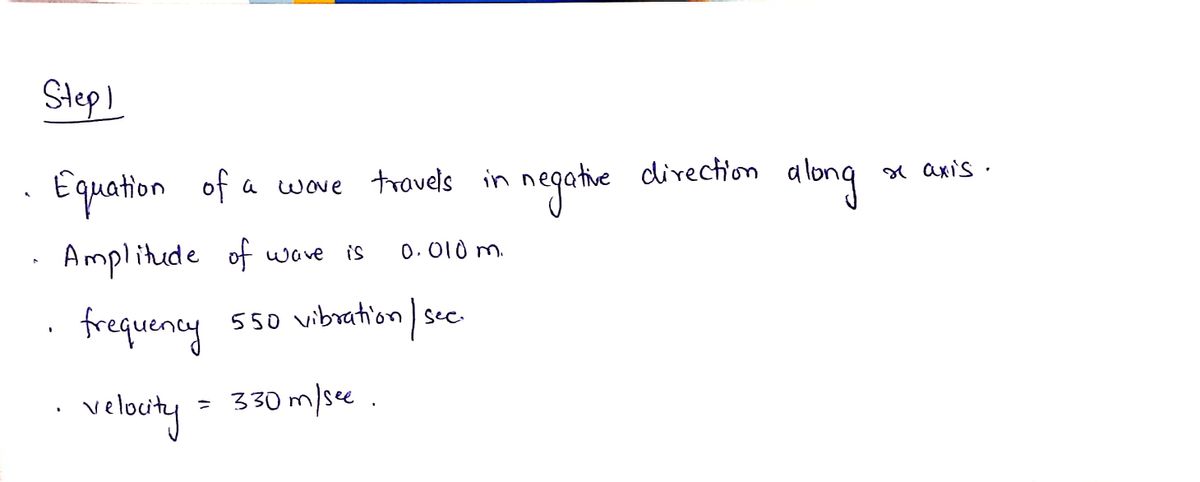 Step 1
. Equation of a wave travels in negative direction along x axis.
. Amplitude of wave is 0.010 m.
. frequency 550 vibration/sec.
. velocity = 330 m/see.